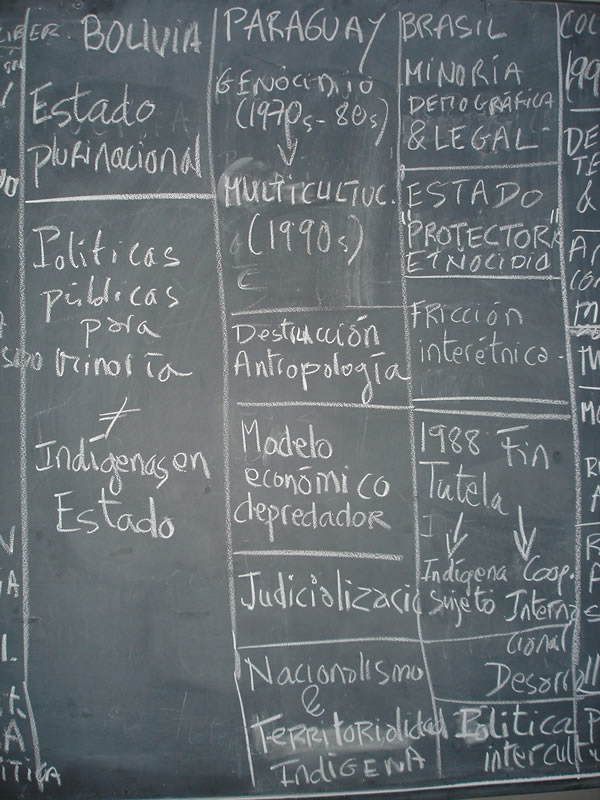 BOLIVIA
Estado
plurinacional
Políticas
públicas
para
minoría
≠
Indígenas en
Estado
PARAGUAY
GENOCIDIO
(1970s-80s)
↓
MULTICULTUC.
(1990s)
Destrucción
Antropología
Modelo
económico
depredador
Judicializació
Nacionalismo
&
TERRITORIALIDAD
INDÍGENA
BRASIL
MINORÍA
DEMOGRÁFICA
& LEGAL
ESTADO
"PROTECTOR"
ETNOCIDIO
Fricción
interétnica
1988 Fin
Tutela
↓ ↓
Indígena Coop.
sujeto Interna
cional
Desarroll
Política
intercultu
COL
199
DE
TE
&